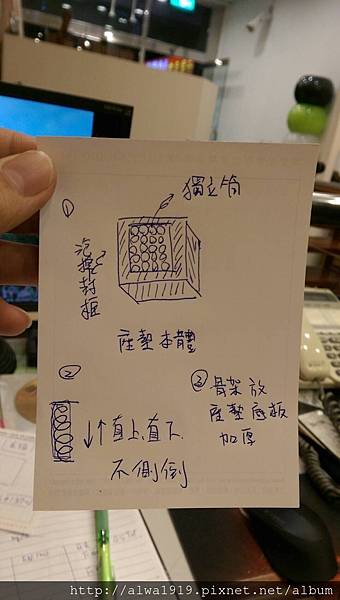 ①
獨立筒
泡棉封框
座墊本體
②
↓↑直上、直下
不側倒
③骨架放
座墊底板
加厚
http://alwa1919.pixnet.net/album